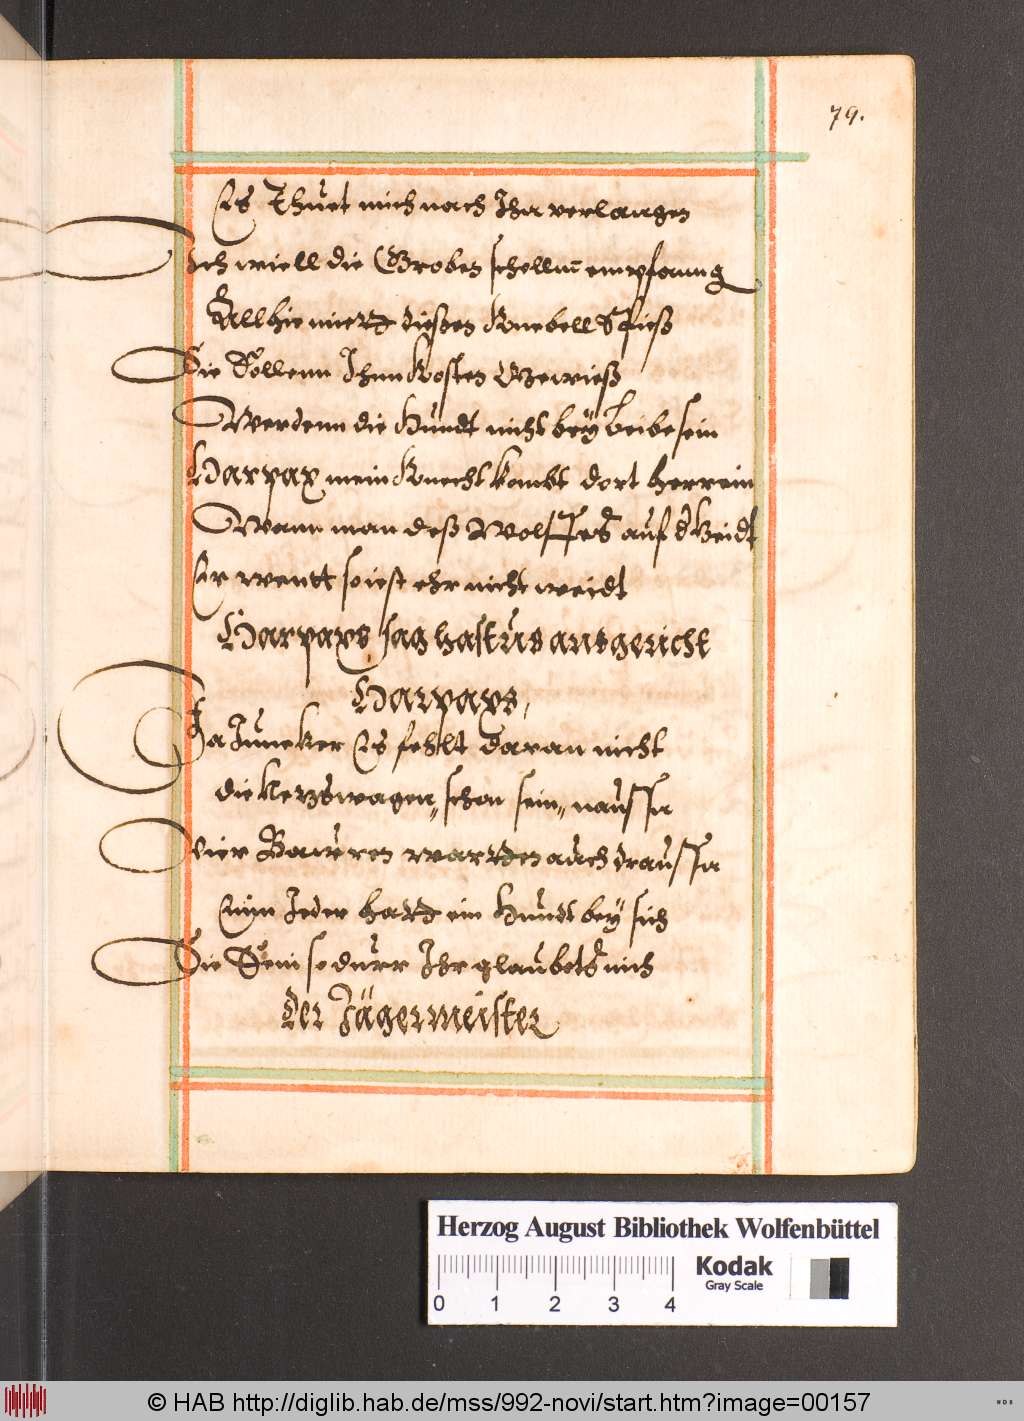 79.
Es Thuet mich nach Ihn verlangen
Ich wiell die Groben schellm empfanng
Allhie miertt dießen Knebell Spieß
Sie Sollenn Ihnn Kosten Gewieß
Werdenn die Hundt nicht bey Leibe sein
Harpax mein Knecht kombt dort herrein
Wann man deß Wolffes auf d' Heidt
Er wentt so iest ehr nicht weidt
Harpaxs sag hastus ausgericht
Harpaxs,
Ja Juncker Es fehlt daran nicht
die Netzswagen schon sein naussn
Vier Bauren wartten auch draussn
Einn Jeder hartt ein Hundt bey sich
Die Sein so dürr Ihr glaubets mich
Der Jägermeister
Herzog August Bibliothek Wolfenbüttel
Kodak
Gray Scale
0 1 2 3 4
© HAB http://diglib.hab.de/mss/992-novi/start.htm?image=00157